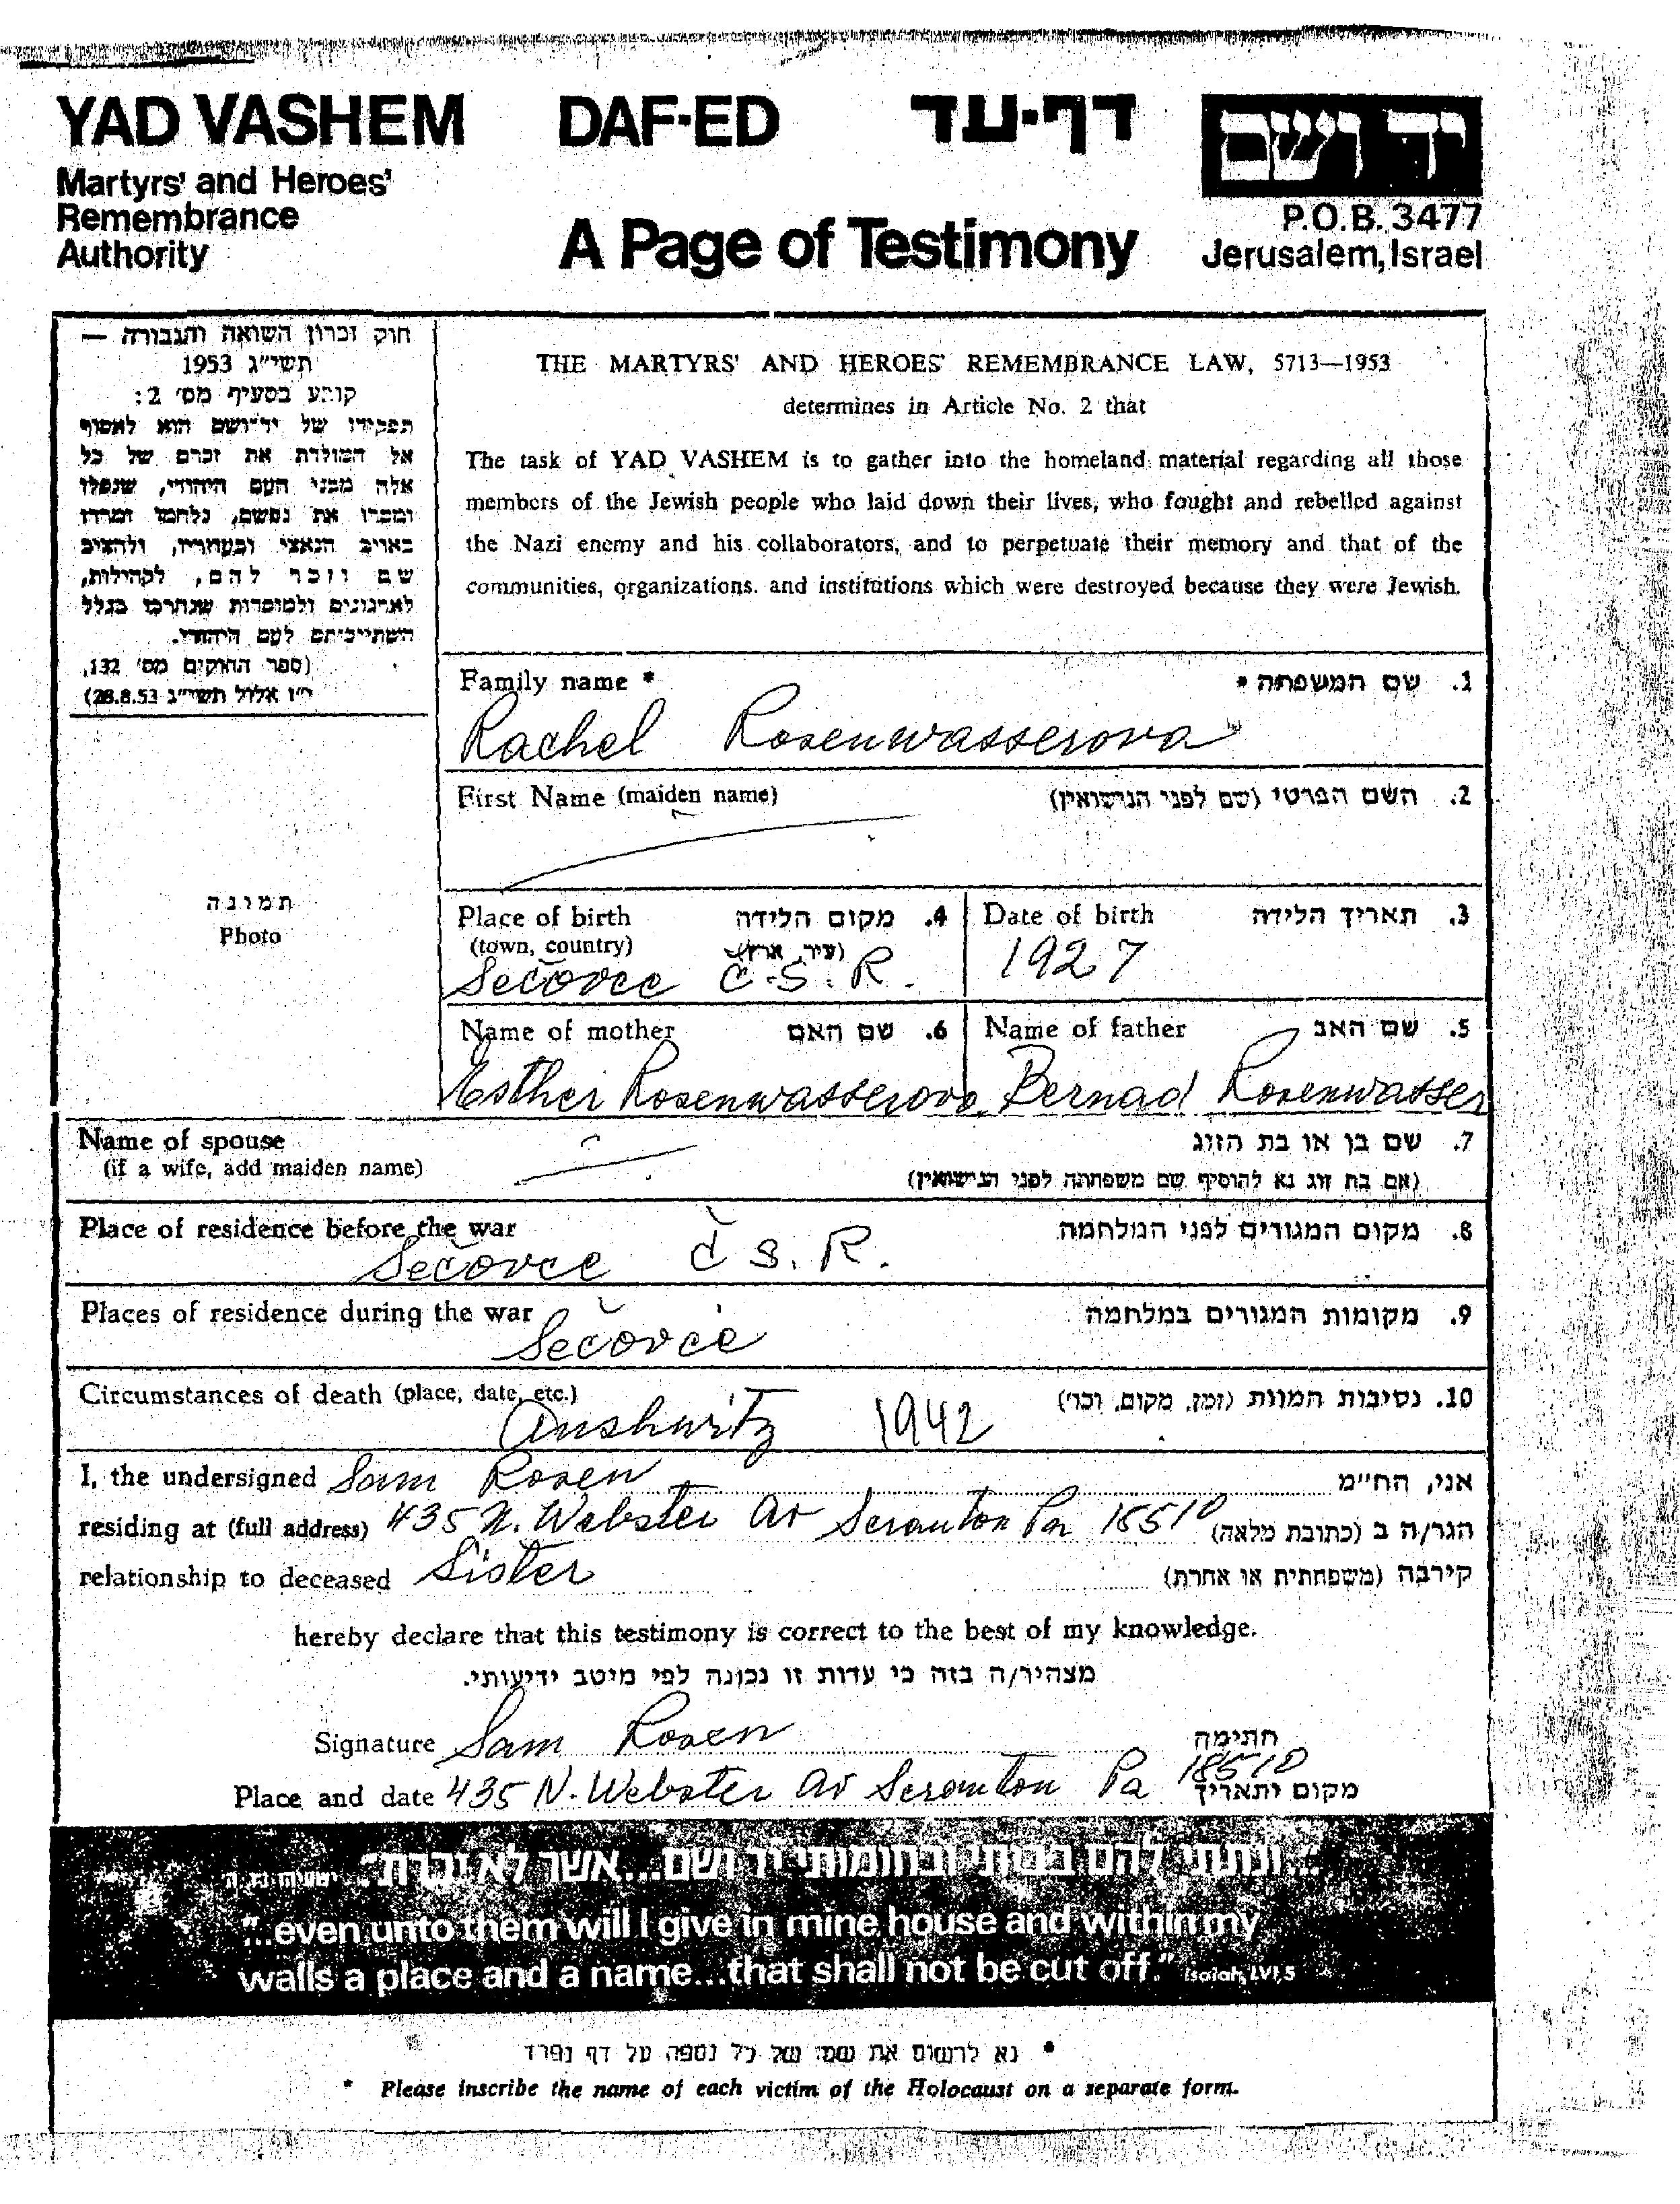 YAD VASHEM DAF-ED דף-עד
יד ושם
Martyrs' and Heroes'
Remembrance
Authority
A Page of Testimony
P.O.B. 3477
Jerusalem, Israel
חוק זכרון השואה והגבורה —
תשי"ג 1953
קובע בסעיף מס' 2:
תפקידו של יד-ושם הוא לאסוף
אל המולדת את זכרם של כל
אלה מבני העם היהודי, שנפלו
ומסרו את נפשם, נלחמו ומרדו
באויב הנאצי ובעוזריו, ולהציב
שם וזכר להם, לקהילות,
לארגונים ולמוסדות שנחרבו בגלל
השתייכותם לעם היהודי.
(ספר החוקים מס' 132,
י"ז אלול תשי"ג 28.8.53)
THE MARTYRS' AND HEROES' REMEMBRANCE LAW, 5713—1953
determines in Article No. 2 that
The task of YAD VASHEM is to gather into the homeland material regarding all those
members of the Jewish people who laid down their lives, who fought and rebelled against
the Nazi enemy and his collaborators, and to perpetuate their memory and that of the
communities, organizations. and institutions which were destroyed because they were Jewish.
תמונה
Photo
Family name * 1. שם המשפחה *
Rachel Rosenwasserova
First Name (maiden name) 2. השם הפרטי (שם לפני הנישואין)
Place of birth 4. מקום הלידה
(town, country) (עיר, ארץ)
Sečovce Č.S.R.
Date of birth 3. תאריך הלידה
1927
Name of mother 6. שם האם
Esther Rosenwasserova
Name of father 5. שם האב
Bernad Rosenwasser
Name of spouse 7. שם בן או בת הזוג
(if a wife, add maiden name) (אם בת זוג נא להוסיף שם משפחתה לפני הנישואין)
Place of residence before the war 8. מקום המגורים לפני המלחמה
Sečovce Č S. R.
Places of residence during the war 9. מקומות המגורים במלחמה
Sečovce
Circumstances of death (place, date, etc.) 10. נסיבות המוות (זמן, מקום, וכו')
Aushwitz 1942
I, the undersigned Sam Rosen אני, הח"מ
residing at (full address) 435 N. Webster Av Scranton Pa 18510 הגר/ה ב (כתובת מלאה)
relationship to deceased Sister קירבה (משפחתית או אחרת)
hereby declare that this testimony is correct to the best of my knowledge.
מצהיר/ה בזה כי עדות זו נכונה לפי מיטב ידיעותי.
Signature Sam Rosen חתימה
Place and date 435 N. Webster Av Scranton Pa 18510 מקום ותאריך
"ונתתי להם בביתי ובחומותי יד ושם...אשר לא יכרת" ישעיהו נו, ה
"...even unto them will I give in mine house and within my
walls a place and a name...that shall not be cut off." Isaiah, LVI, 5
* נא לרשום את שמו של כל נספה על דף נפרד
* Please inscribe the name of each victim of the Holocaust on a separate form.